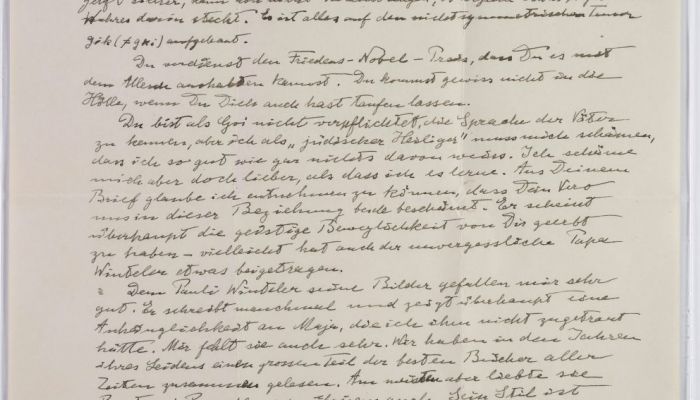 Wahres daran steckt. Es ist alles auf den nichtsymmetrischen Tensor
gik (≠ gki) aufgebaut.
Du verdienst den Friedens-Nobel-Preis, dass Du es mit
dem Allem aushalten kannst. Du kommst gewiss nicht in die
Hölle, wenn Du Dich auch hast taufen lassen.
Du bist als Goi nicht verpflichtet, die Sprache der Väter
zu kennen, aber ich als „jüdischer Heiliger" muss mich schämen,
dass ich so gut wie gar nichts davon weiss. Ich schäme
mich aber doch lieber, als dass ich es lerne. Aus Deinem
Brief glaube ich entnehmen zu können, dass Dein Vero
uns in dieser Beziehung beide beschämt. Er scheint
überhaupt die geistige Beweglichkeit von Dir geerbt
zu haben – vielleicht hat auch der unvergessliche Papa
Winteler etwas beigetragen.
Dem Pauli Winteler seine Bilder gefallen mir sehr
gut. Er schreibt manchmal und zeigt überhaupt eine
Anhänglichkeit an Maja, die ich ihm nicht zugetraut
hätte. Mir fehlt sie auch sehr. Wir haben in den Jahren
ihres Leidens einen grossen Teil der besten Bücher aller
Zeiten zusammen gelesen. Am meisten aber liebte sie
Sein Stil ist